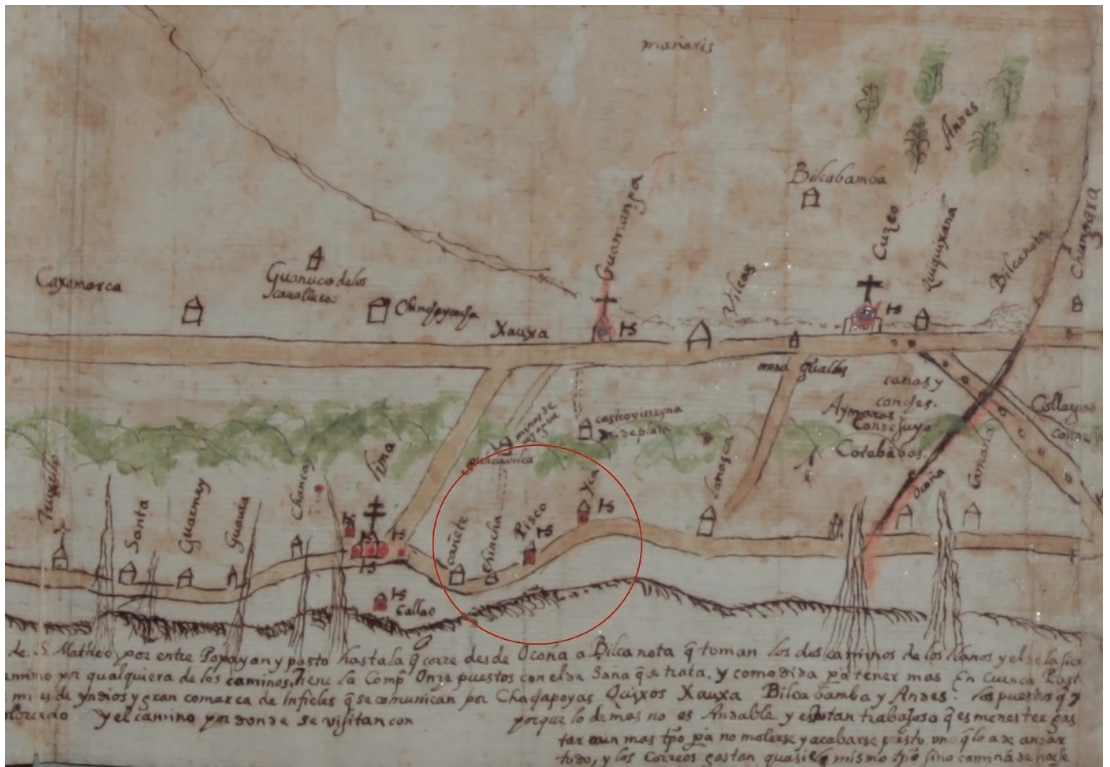 mañaris
Andes
Bilcabamba
Guamanga
Cuzco
Quiquixana
Bilcanota
Chungara
Vilcas
Caxamarca
Guanuco de los
Chachapoyas
Xauxa
HS
HS
canas y
canches.
Aymaras
Condesuyo
Cotababas
Collaguas
minas de
castrovirreyna
m. de plata
Truxillo
Santa
Guarmey
Guaura
Chancay
Lima
HS
HS
HS
Callao
Cañete
Chincha
Pisco
Yca
HS
Lanasca
Ocoña
Camana
de S. Matheo por entre Popayan y pasto hasta la q corre desde Ocoña a Bilcanota q toman los dos caminos de los llanos y el de la sier
camino por qualquiera de los caminos. Tiene la Comp Onze puestos con el de Saña q se trata, y comodidad pa tener mas En Cuenca Past
miles de yndios y gran comarca de Infieles q se comunican por Chachapoyas Quixos Xauxa Bilcabamba y Andes. los puertos q
y el camino por donde se visitan con porque lo demas no es Andable y es tan trabajosa q es menester gas
tar aun mas tpo pa no molerse y acabarse presto, uno q lo a de andar
todo, y los Correos gastan quasi el mismo tpo sino caminã de noche